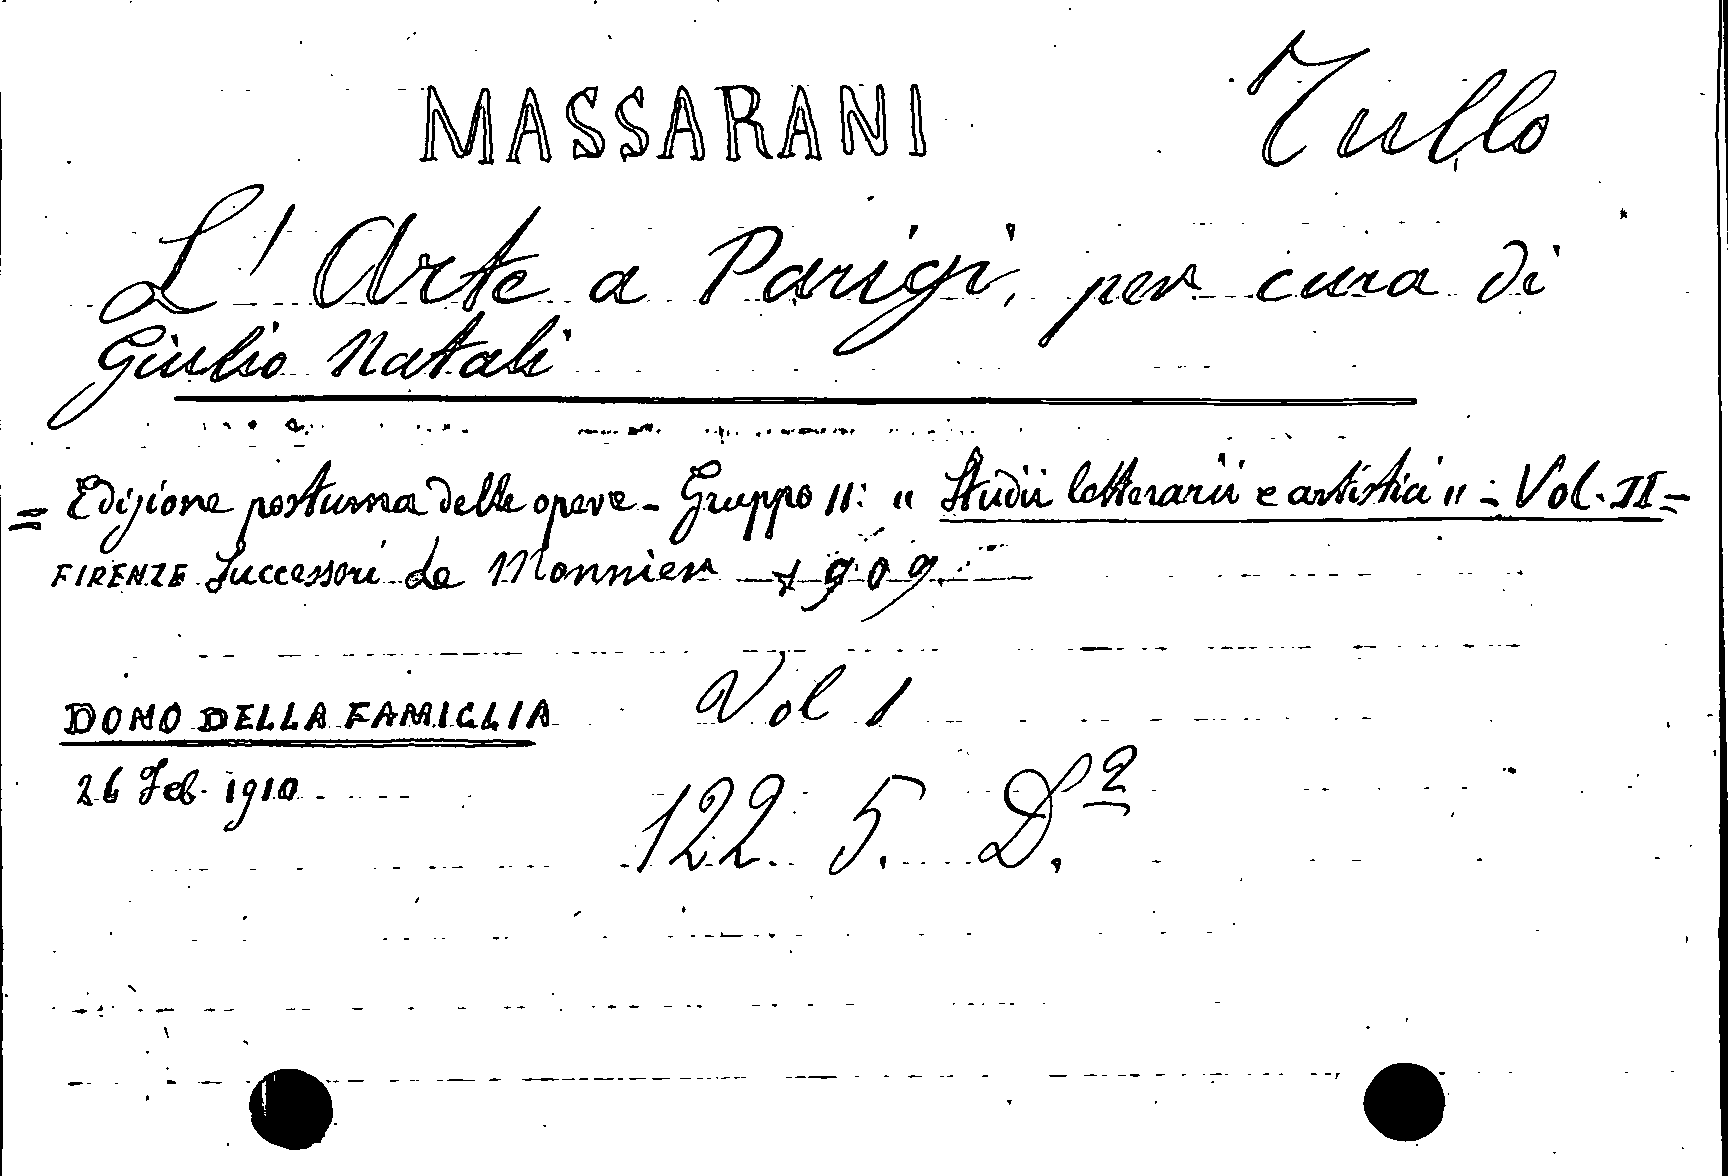 MASSARANI Tullo
L'Arte a Parigi, per cura di
Giulio Natali
= Edizione postuma delle opere - Gruppo II: " Studii letterarii e artistici " - Vol. II =
FIRENZE Successori Le Monnier 1909.
Vol 1
DONO DELLA FAMIGLIA
26 Feb. 1910
122. 5. D.2